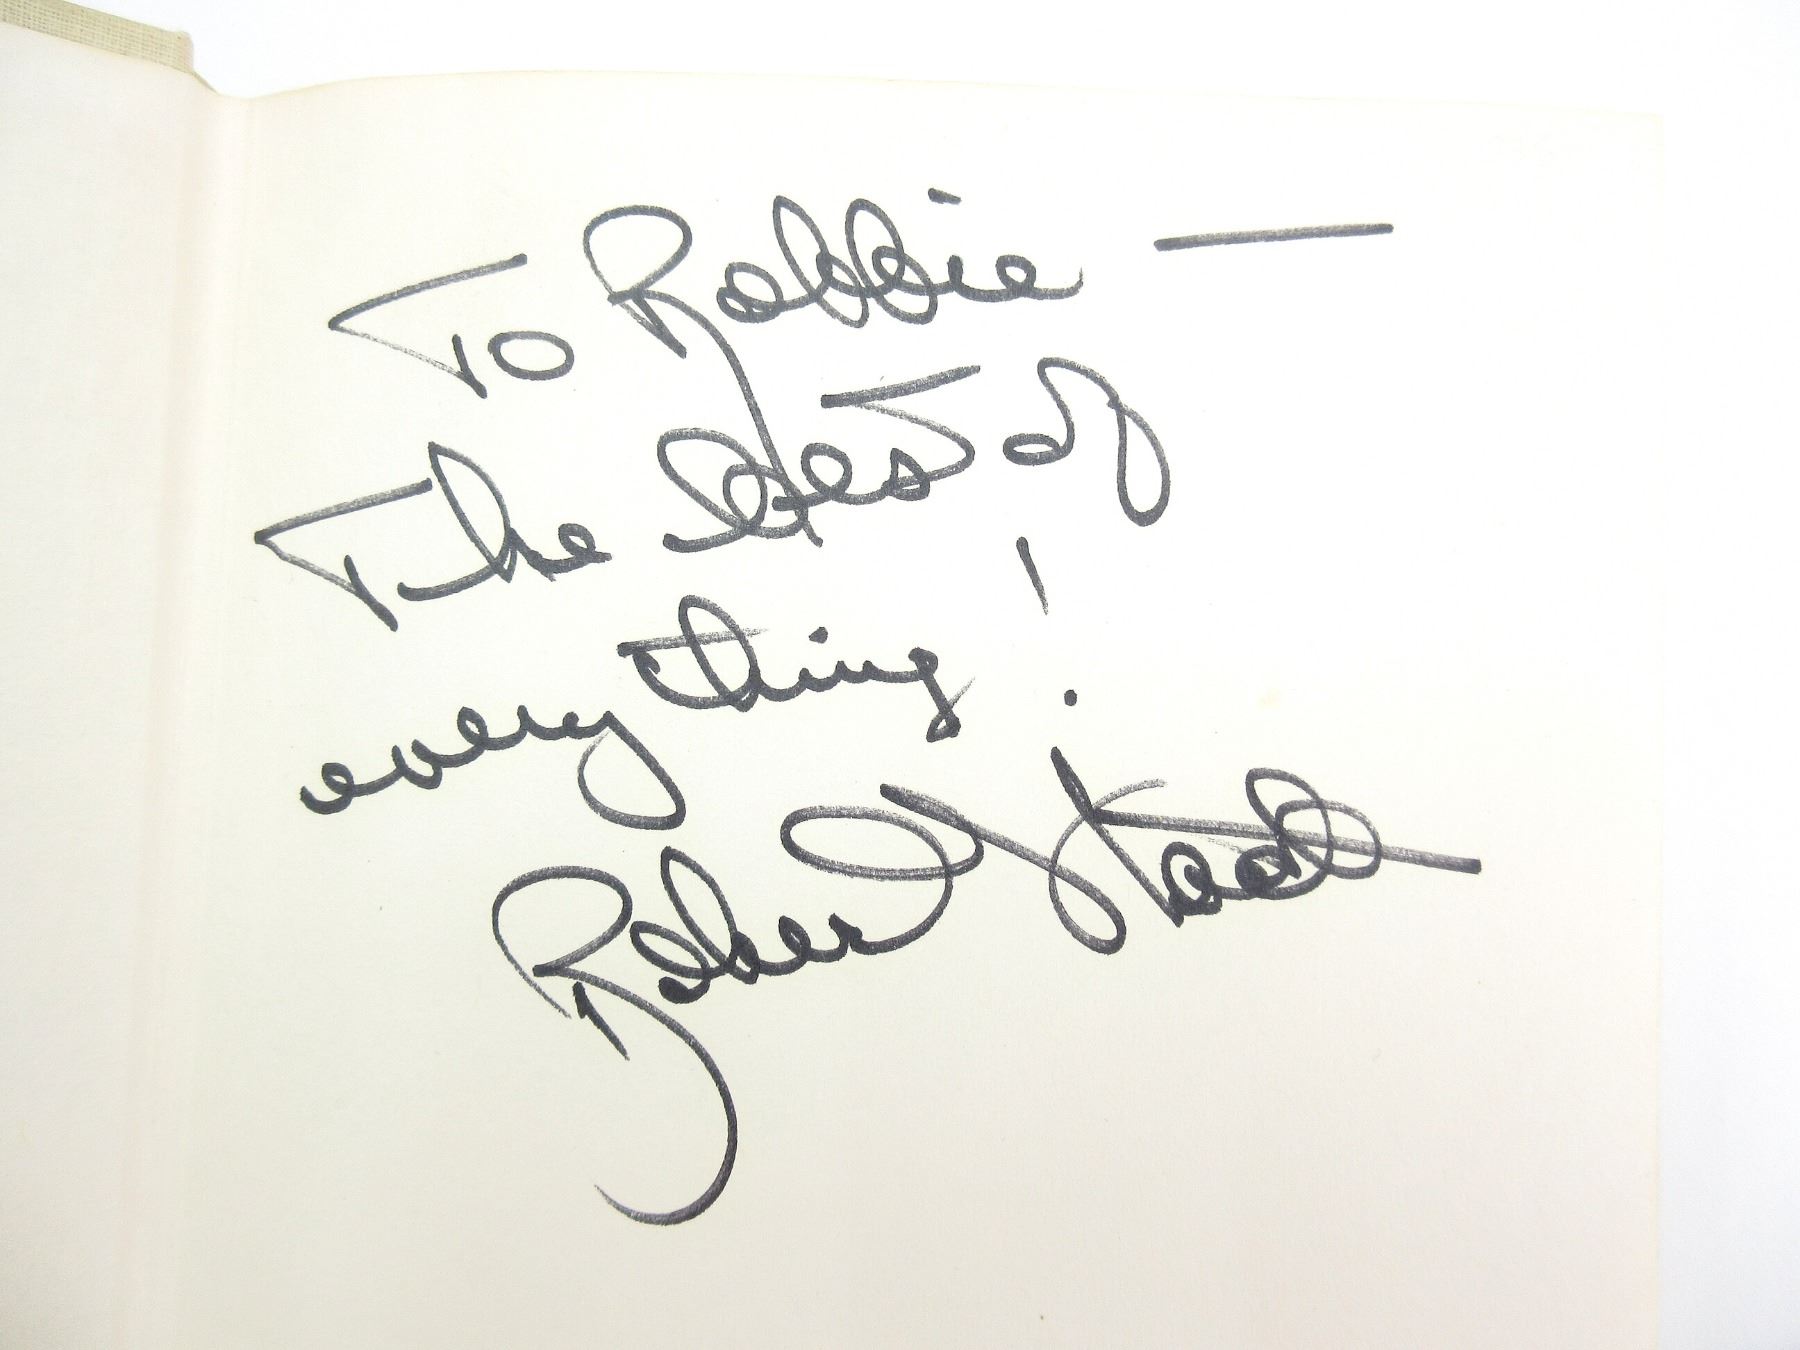 To Robbie —
The best of
everything!
Robert Stack